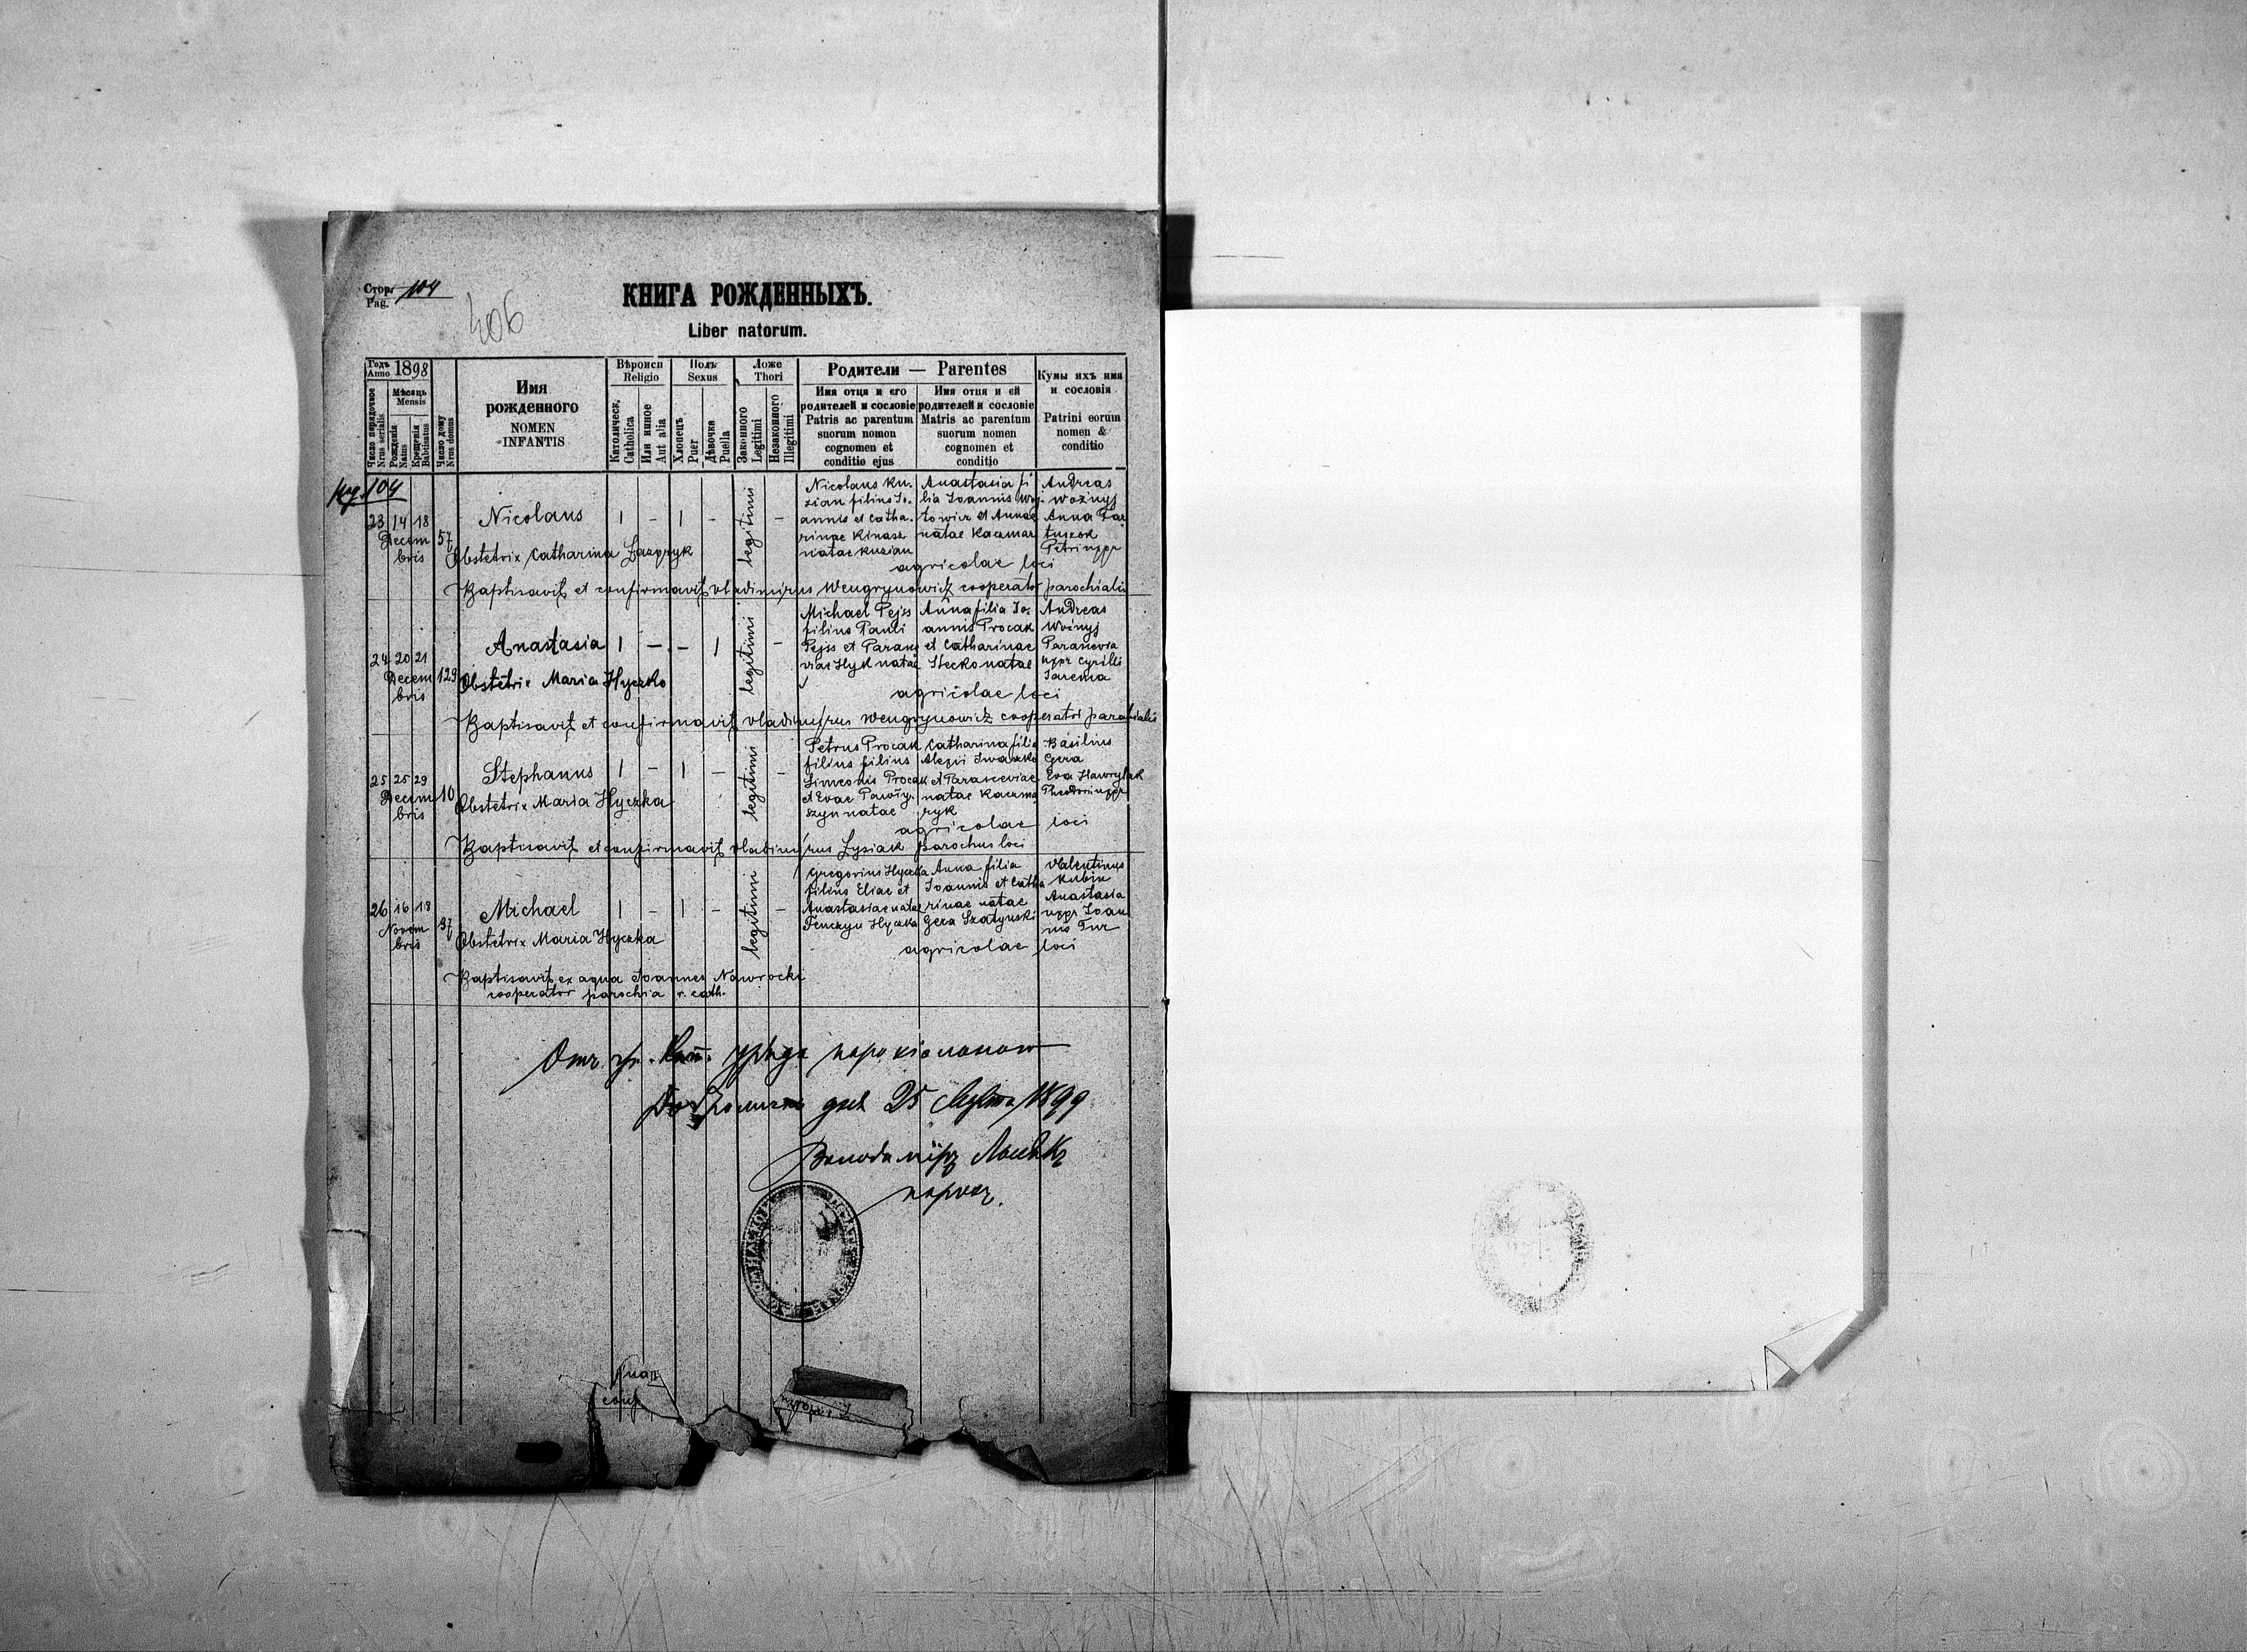 Стор. 104
Pag.
406
КНИГА РОЖДЕННЫХЪ.
Liber natorum.
Годъ Anno 1898
Число порядочное Nrus serialis
Мѣсяць Mensis
Рожденія Natus
Крещенія Babtisatus
Число дому Nrus domus
Имя рожденного
NOMEN INFANTIS
Вѣроисп Religio
Католическ. Catholica
Или инное Aut alia
Полъ Sexus
Хлопець Puer
Дѣвочка Puella
Ложе Thori
Законного Legitimi
Незаконного Illegitimi
Родители — Parentes
Имя отця и его родителей и сословіе
Patris ac parentum suorum nomon cognomen et conditio ejus
Имя отця и ей родителей и сословіе
Matris ac parentum suorum nomen cognomen et conditio
Кумы ихъ имя и сословія
Patrini eorum nomen & conditio
104
23 14 18 Decembris 57
Nicolaus 1 - 1 - legitimi -
Nicolaus Ku-
zian filius Jo-
annis et Catha-
rinae Kinasz
natae Kuzian
Anastasia fi
lia Joannis Woj-
towicz et Annae
natae Kaczmar
Andreas
Woźnyj
Anna
Petri uxor
Obstetrix Catharina
agricolae loci
Baptisavit et confirmavit Vladimirus Wengrynowicz cooperator parochialis
24 20 21 Decembris 129
Anastasia 1 - - 1 legitimi -
Michael Pejss
filius Pauli
Pejss et Parasce
viae Hyk natae
Anna filia Jo-
annis Procak
et Catharinae
Stecko natae
Andreas
Woźnyj
Parascevia
uxor Cyrilli
Jarema
Obstetrix Maria Hyczko
agricolae loci
Baptisavit et confirmavit Vladimirus Wengrynowicz cooperator parochialis
25 25 29 Decembris 10
Stephanus 1 - 1 - legitimi -
Petrus Procak
filius filius
Simeonis Procak
et Evae
szyn natae
Catharina filia
Alexii Iwaszko
et Parasceviae
natae Kaczma
ryk
Basilius
Gera
Eva Hawrylak
Theodori uxor
Obstetrix Maria Hyczka
agricolae loci
Baptisavit et confirmavit Vladimirus Lysiak parochus loci
26 16 18 Novembris 37
Michael 1 - 1 - legitimi -
Gregorius Hyczka
filius Eliae et
Anastasiae natae
Fenczyn Hyczka
Anna filia
Joannis et Catha
rinae natae
Gera Szatynski
Valentinus
Kubin
Anastasia
uxor Joan
nis Tur
Obstetrix Maria Hyczka
agricolae loci
Baptisavit ex aqua Joannes Nawrocki
cooperator parochia r. cath.
Отъ гр. кат. уряда
дня 25 Лютого 1899
Володимиръ Лысякъ
парохъ.